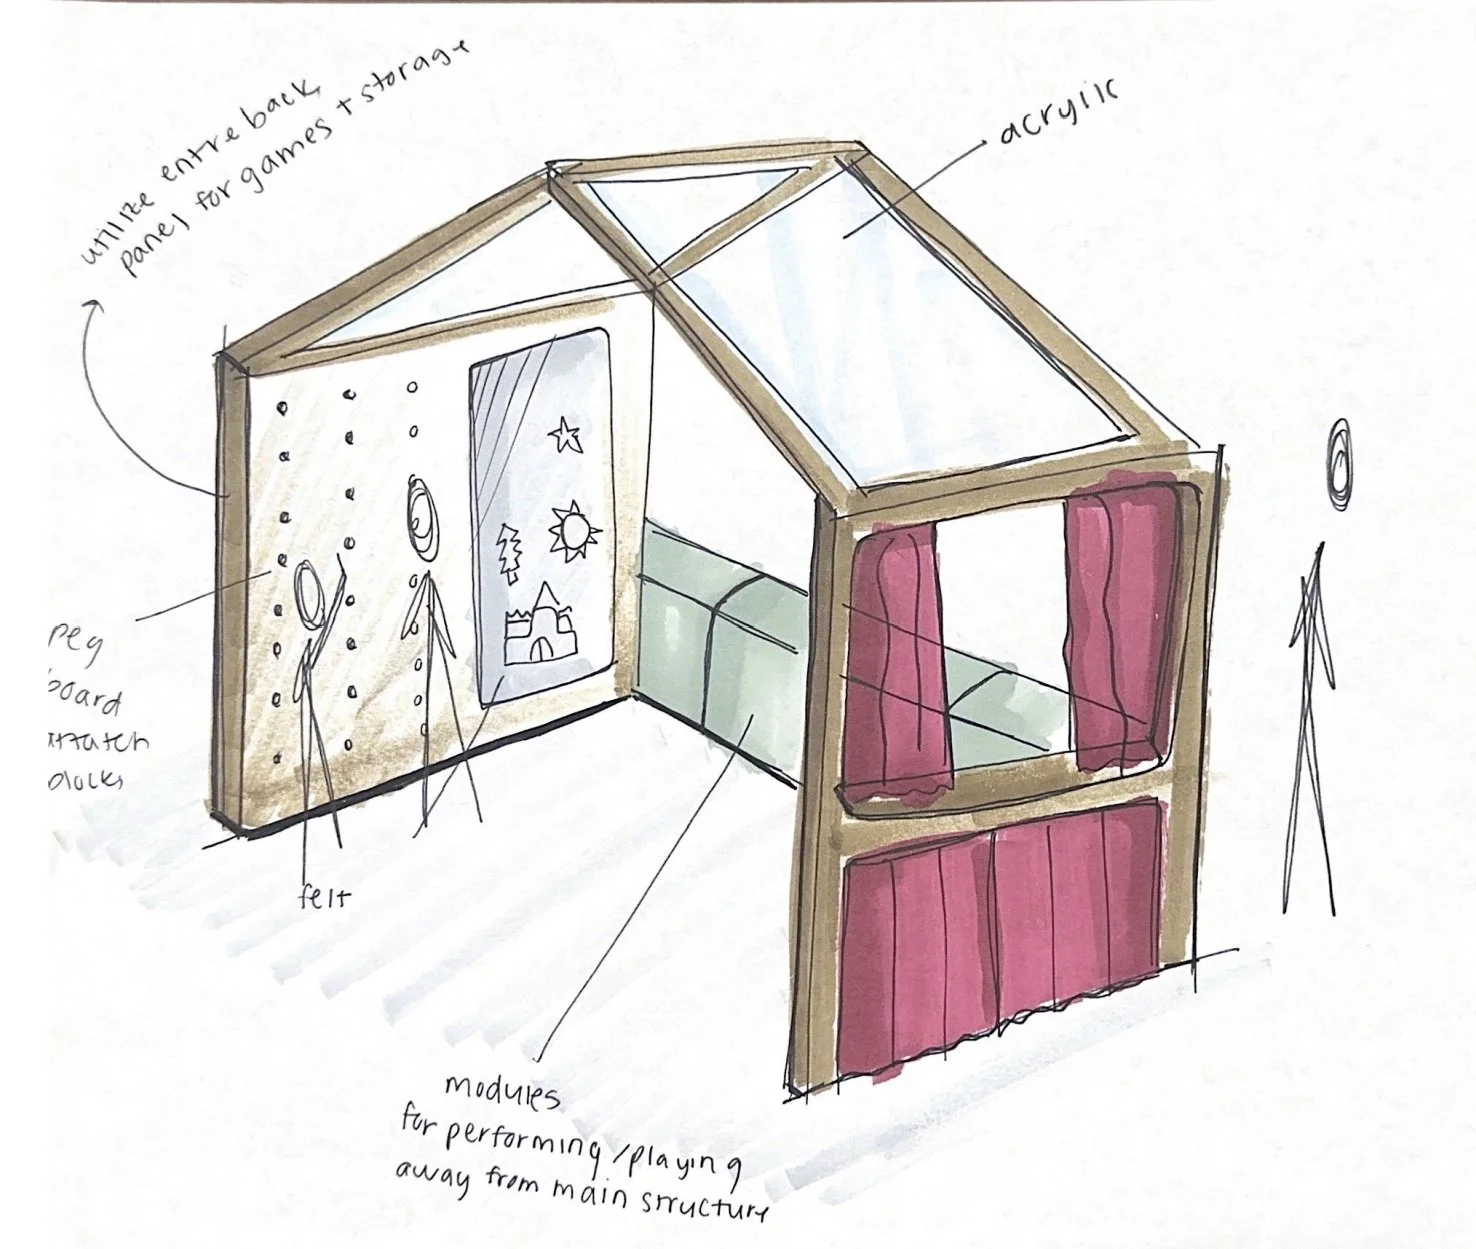 utilize entre back
panel for games + storage
acrylic
peg
board
attatch
blocks
felt
modules
for performing/playing
away from main structure